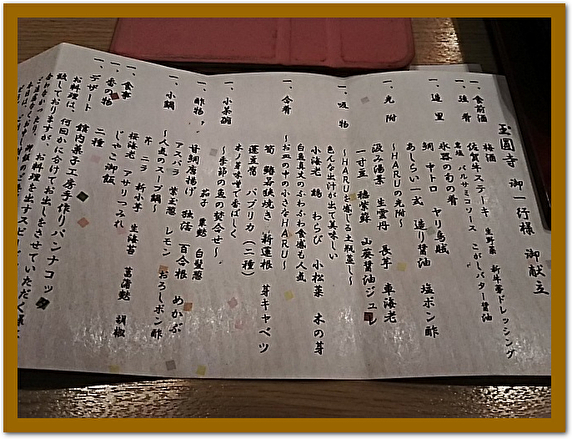 玉圓寺 御一行様 御献立
一、食前酒 梅酒
一、強肴 佐賀牛ステーキ 生野菜 新牛蒡ドレッシング
岩塩 バルサミコソース こがしバター醤油
一、造里 氷器の旬の肴
鯛 中トロ ヤリ烏賊
あしらい一式 造り醤油 塩ポン酢
一、先附 ～HARUの先附～
汲み湯葉 生雲丹 長芋 車海老
一寸豆 穂紫蘇 山葵醤油ジュレ
一、吸物 ～HARUを感じる土瓶蒸し～
色んな出汁が出て美味しい
小海老 鶏 わらび 小松菜 木の芽
一、合肴 白魚真丈のふわふわ食感も人気
～お皿の中の小さなHARU～
筍 鰆若狭焼き 新蓮根 芽キャベツ
一、小茶碗 蓮豆腐 パプリカ(二種)
木ノ芽味噌で香ばしく
～季節の香の焚合せ～
茄子 粟麩 白髪葱
一、酢物 甘鯛唐揚げ 独活 百合根 めかぶ
アスパラ 紫玉葱 レモン おろしポン酢
一、小鍋 ～人気のスープ鍋～
芹 ニラ 新小芋 生海苔 蓬湯麩 胡椒
桜海老 アサリつみれ
一、食事 じゃこ御飯
一、香の物 二種
一、デザート 館内菓子工房手作りパンナコッタ
お料理は、何回かに分けてお出しをさせていただく様に
致しておりますが、お料理を出すスピード